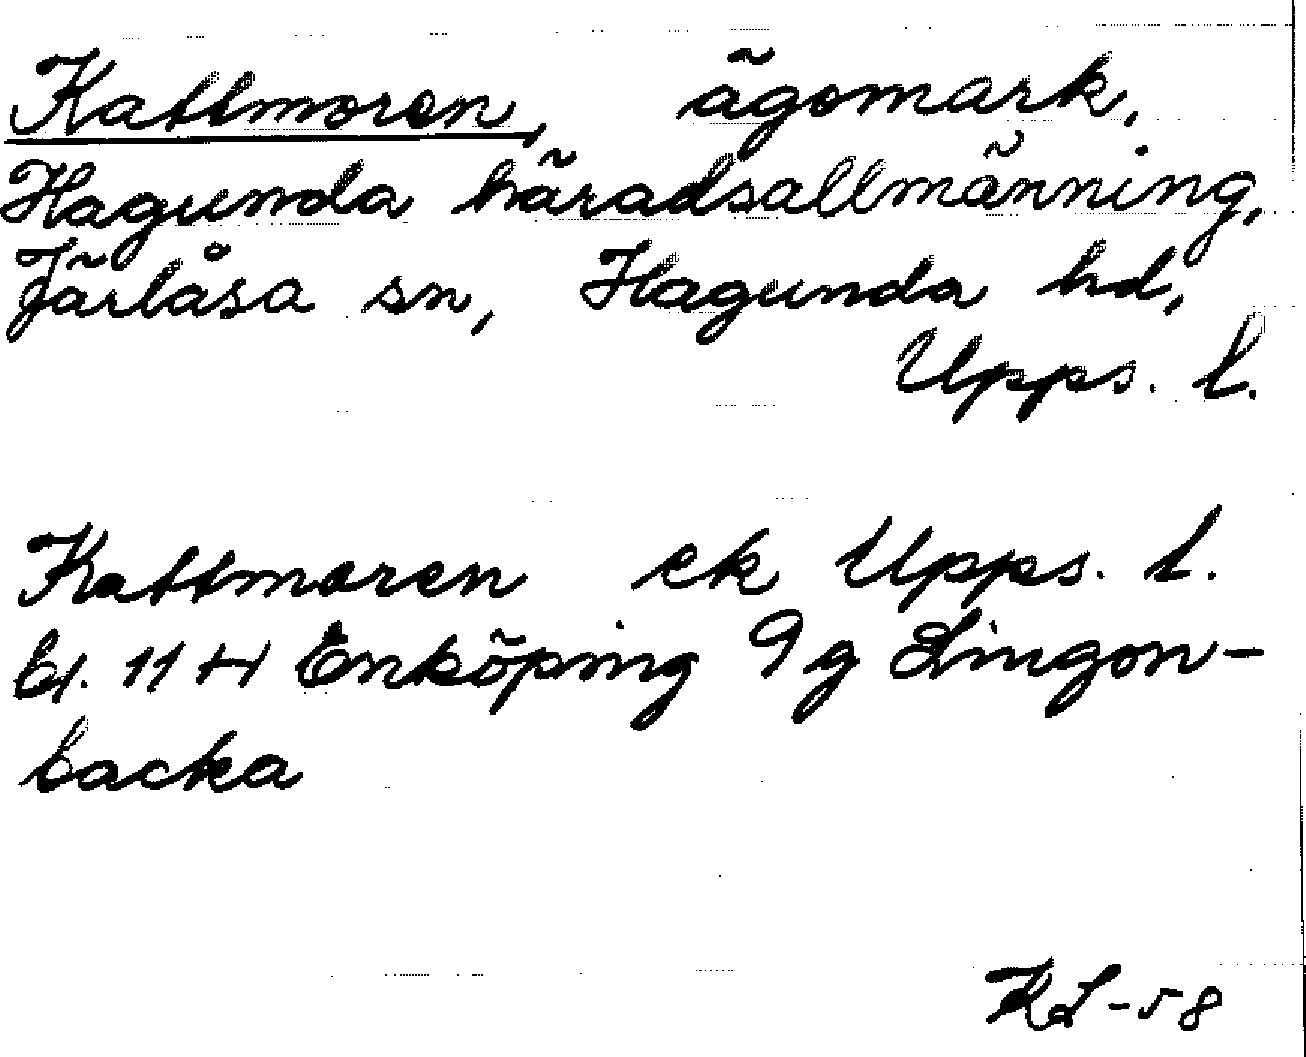 Kattmoren, ägomark,
Hagunda häradsallmänning,
Järlåsa sn, Hagunda hd,
Upps. l.
Kattmoren ek Upps. l.
Bl. 11 H Enköping 9 g Lingon-
backa
KL-58